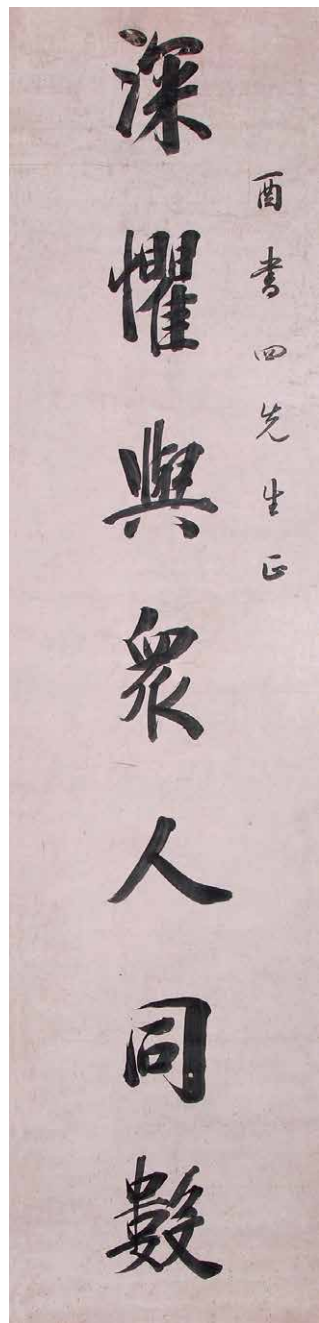 酉書四先生正
深懼與衆人同數